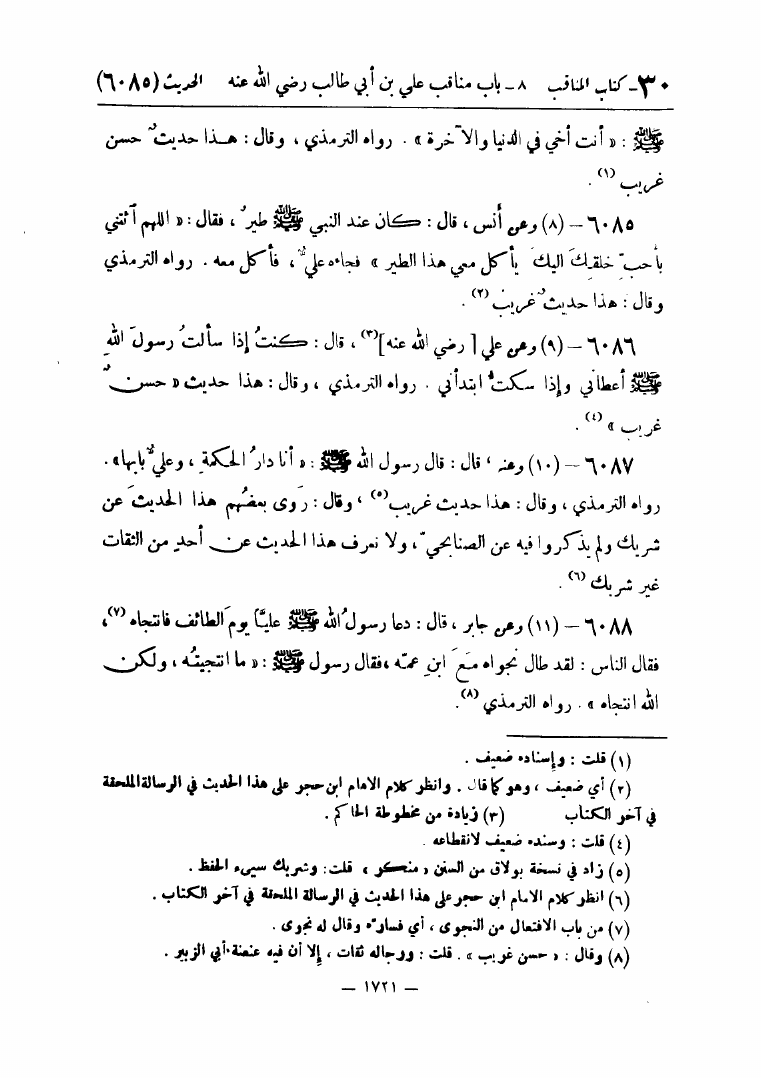 ٣٠ - كتاب المناقب ٨ - باب مناقب علي بن أبي طالب رضي الله عنه الحديث (٦٠٨٥)
ﷺ : « أنت أخي في الدنيا والآخرة » . رواه الترمذي ، وقال : هذا حديثٌ حسن
غريب (١) .
٦٠٨٥ – (٨) وعن أنس ، قال : كان عند النبي ﷺ طيرٌ ، فقال : « اللهم آتني
بأحبِّ خلقِكَ اليكَ يأكل معي هذا الطير » فجاءه عليٌّ ، فأكل معه . رواه الترمذي
وقال : هذا حديثٌ غريب (٢) .
٦٠٨٦ – (٩) وعن علي [ رضي الله عنه ] (٣) ، قال : كنتُ إذا سألتُ رسولَ اللهِ
ﷺ أعطاني وإذا سكتُّ ابتدأني . رواه الترمذي ، وقال : هذا حديث « حسنٌ
غريب » (٤) .
٦٠٨٧ – (١٠) وعنه ، قال : قال رسول الله ﷺ : « أنا دارُ الحكمةِ ، وعليٌّ بابها » .
رواه الترمذي ، وقال : هذا حديث غريب (٥) ، وقال : رَوى بعضُهم هذا الحديثَ عن
شريك ولم يذكروا فيه عن الصنابحيّ ، ولا نعرف هذا الحديث عن أحدٍ من الثقات
غير شريك (٦) .
٦٠٨٨ – (١١) وعن جابر ، قال : دعا رسولُ الله ﷺ عليَّاً يومَ الطائف فانتجاه (٧) ،
فقال الناس : لقد طال نجواه مَعَ ابنِ عمّه ، فقال رسول ﷺ : « ما انتجيتُه ، ولكن
الله انتجاه » . رواه الترمذي (٨) .
(١) قلت : وإسناده ضعيف .
(٢) أي ضعيف ، وهو كما قال . وانظر كلام الامام ابن حجر على هذا الحديث في الرسالة الملحقة
في آخر الكتاب (٣) زيادة من مخطوطة الحاكم .
(٤) قلت : وسنده ضعيف لانقطاعه .
(٥) زاد في نسخة بولاق من السنن « منكر » قلت : وشريك سيىء الحفظ .
(٦) انظر كلام الامام ابن حجر على هذا الحديث في الرسالة الملحقة في آخر الكتاب .
(٧) من باب الافتعال من النجوى ، أي فسارّه وقال له نجوى .
(٨) وقال : « حسن غريب » . قلت : ورجاله ثقات ، إلا أن فيه عنعنة أبي الزبير .
– ١٧٢١ –